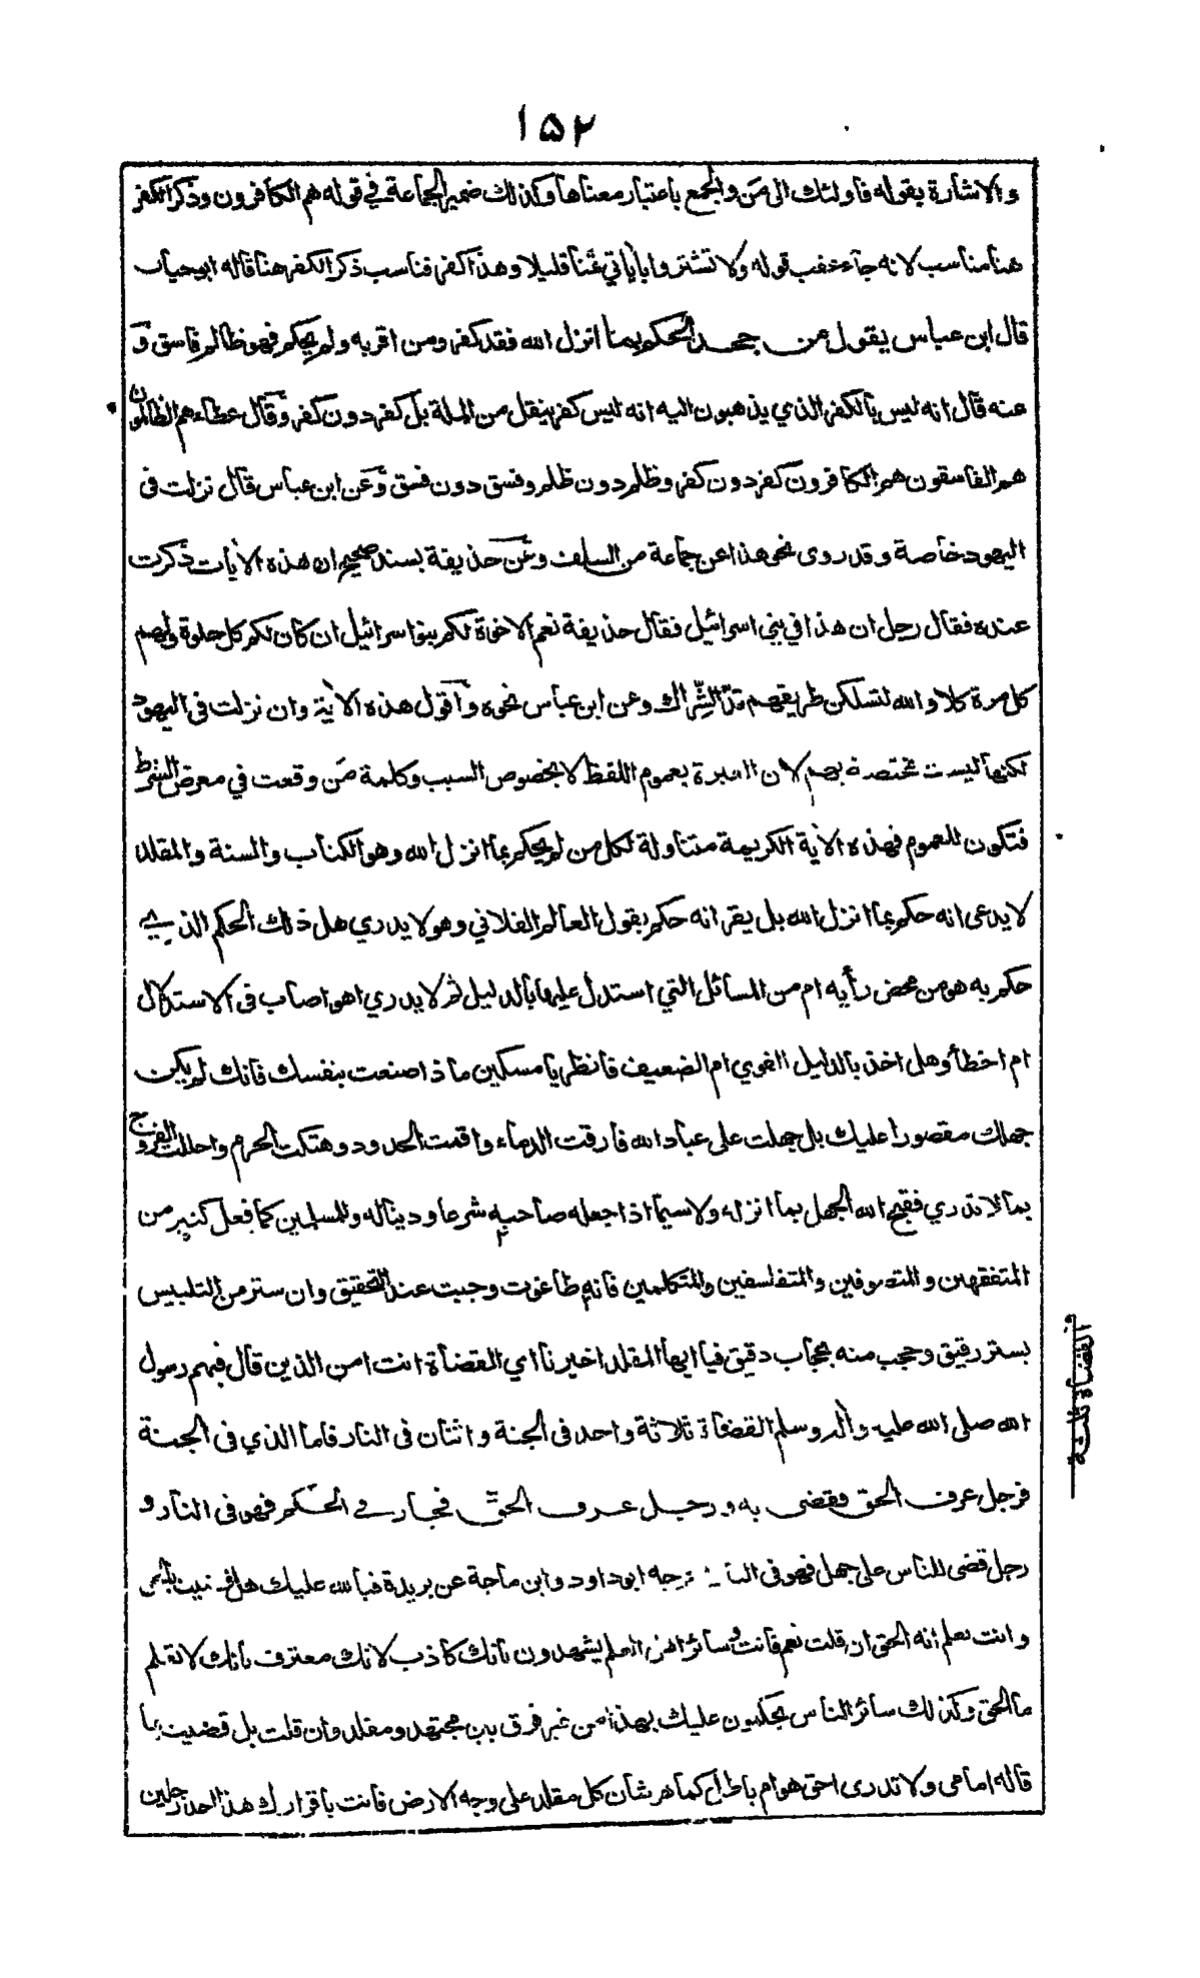 ١٥٢
والاشارة بقوله فاولئك الى مَن والجمع باعتبار معناها وكذلك ضمير الجماعة في قوله هم الكافرون وذكر الكفر
هنا مناسب لانه جاء عقب قوله ولا تشتروا باٰياتي ثمنا قليلا وهذا كفر فناسب ذكر الكفر هنا قاله ابو حيان
قال ابن عباس يقول من جحد الحكم بما انزل الله فقد كفر ومن اقر به ولم يحكم فهو ظالم فاسق و
عنه قال انه ليس بالكفر الذي يذهبون اليه انه ليس كفر ينقل من الملة بل كفر دون كفر وقال عطاء هم الظالمون
هم الفاسقون هم الكافرون كفر دون كفر وظلم دون ظلم وفسق دون فسق وعن ابن عباس قال نزلت فى
اليهود خاصة وقد روى نحو هذا عن جماعة من السلف وعن حذيفة بسند صحيح ان هذه الاٰيات ذكرت
عنده فقال رجل ان هذا في بني اسرائيل فقال حذيفة نعم الاخوة لكم بنو اسرائيل ان كان لكم كل حلوة ولهم
كل مرة كلا والله لتسلكن طريقهم قدّ الشِّراك وعن ابن عباس نحوه واقول هذه الاٰية وان نزلت فى اليهود
لكنها ليست مختصة بهم لان العبرة بعموم اللفظ لا بخصوص السبب وكلمة مَن وقعت في معرض الشرط
فتكون للعموم فهذه الاٰية الكريمة متناولة لكل من لم يحكم بما انزل الله وهو الكتاب والسنة والمقلد
لا يدعى انه حكم بما انزل الله بل يقر انه حكم بقول العالم الفلاني وهو لا يدري هل ذلك الحكم الذي
حكم به هو من محض رأيه ام من المسائل التي استدل عليها بالدليل ثم لا يدري اهو اصاب فى الاستدلال
ام اخطأ وهل اخذ بالدليل القوي ام الضعيف فانظر يا مسكين ماذا صنعت بنفسك فانك لم يكن
جهلك مقصورا عليك بل جهلت على عباد الله فارقت الدماء واقمت الحدود وهتكت الحرم واحللت الفروج
بما لا تدري فقبح الله الجهل بما انزله ولا سيما اذا جعله صاحبه شرعا ودينا له وللمسلمين كما فعل كثير من
المتفقهين والمتصوفين والمتفلسفين والمتكلمين فانه طاغوت وجبت عند التحقيق وان ستر من التلبيس
بستر رقيق وحجب منه بحجاب دقيق فيا ايها المقلد اخبرنا اي القضاة انت امن الذين قال فيهم رسول
الله صلى الله عليه واٰله وسلم القضاة ثلاثة واحد فى الجنة واثنان فى النار فاما الذي فى الجنة
فرجل عرف الحق فقضى به ورجل عرف الحق فجار في الحكم فهو فى النار و
رجل قضى للناس على جهل فهو فى النار اخرجه ابو داود وابن ماجة عن بريدة فبالله عليك هل قضيت بالحق
وانت تعلم انه الحق ان قلت نعم فانت وسائر اهل العلم يشهدون بانك كاذب لانك معترف بانك لا تعلم
ما الحق وكذلك سائر الناس يحكمون عليك بهذا من غير فرق بين مجتهد ومقلد وان قلت بل قضيت بما
قاله امامى ولا تدرى احق هو ام باطل كما هو شأن كل مقلد على وجه الارض فانت باقرارك هذا احد رجلين
القضاة ثلثة